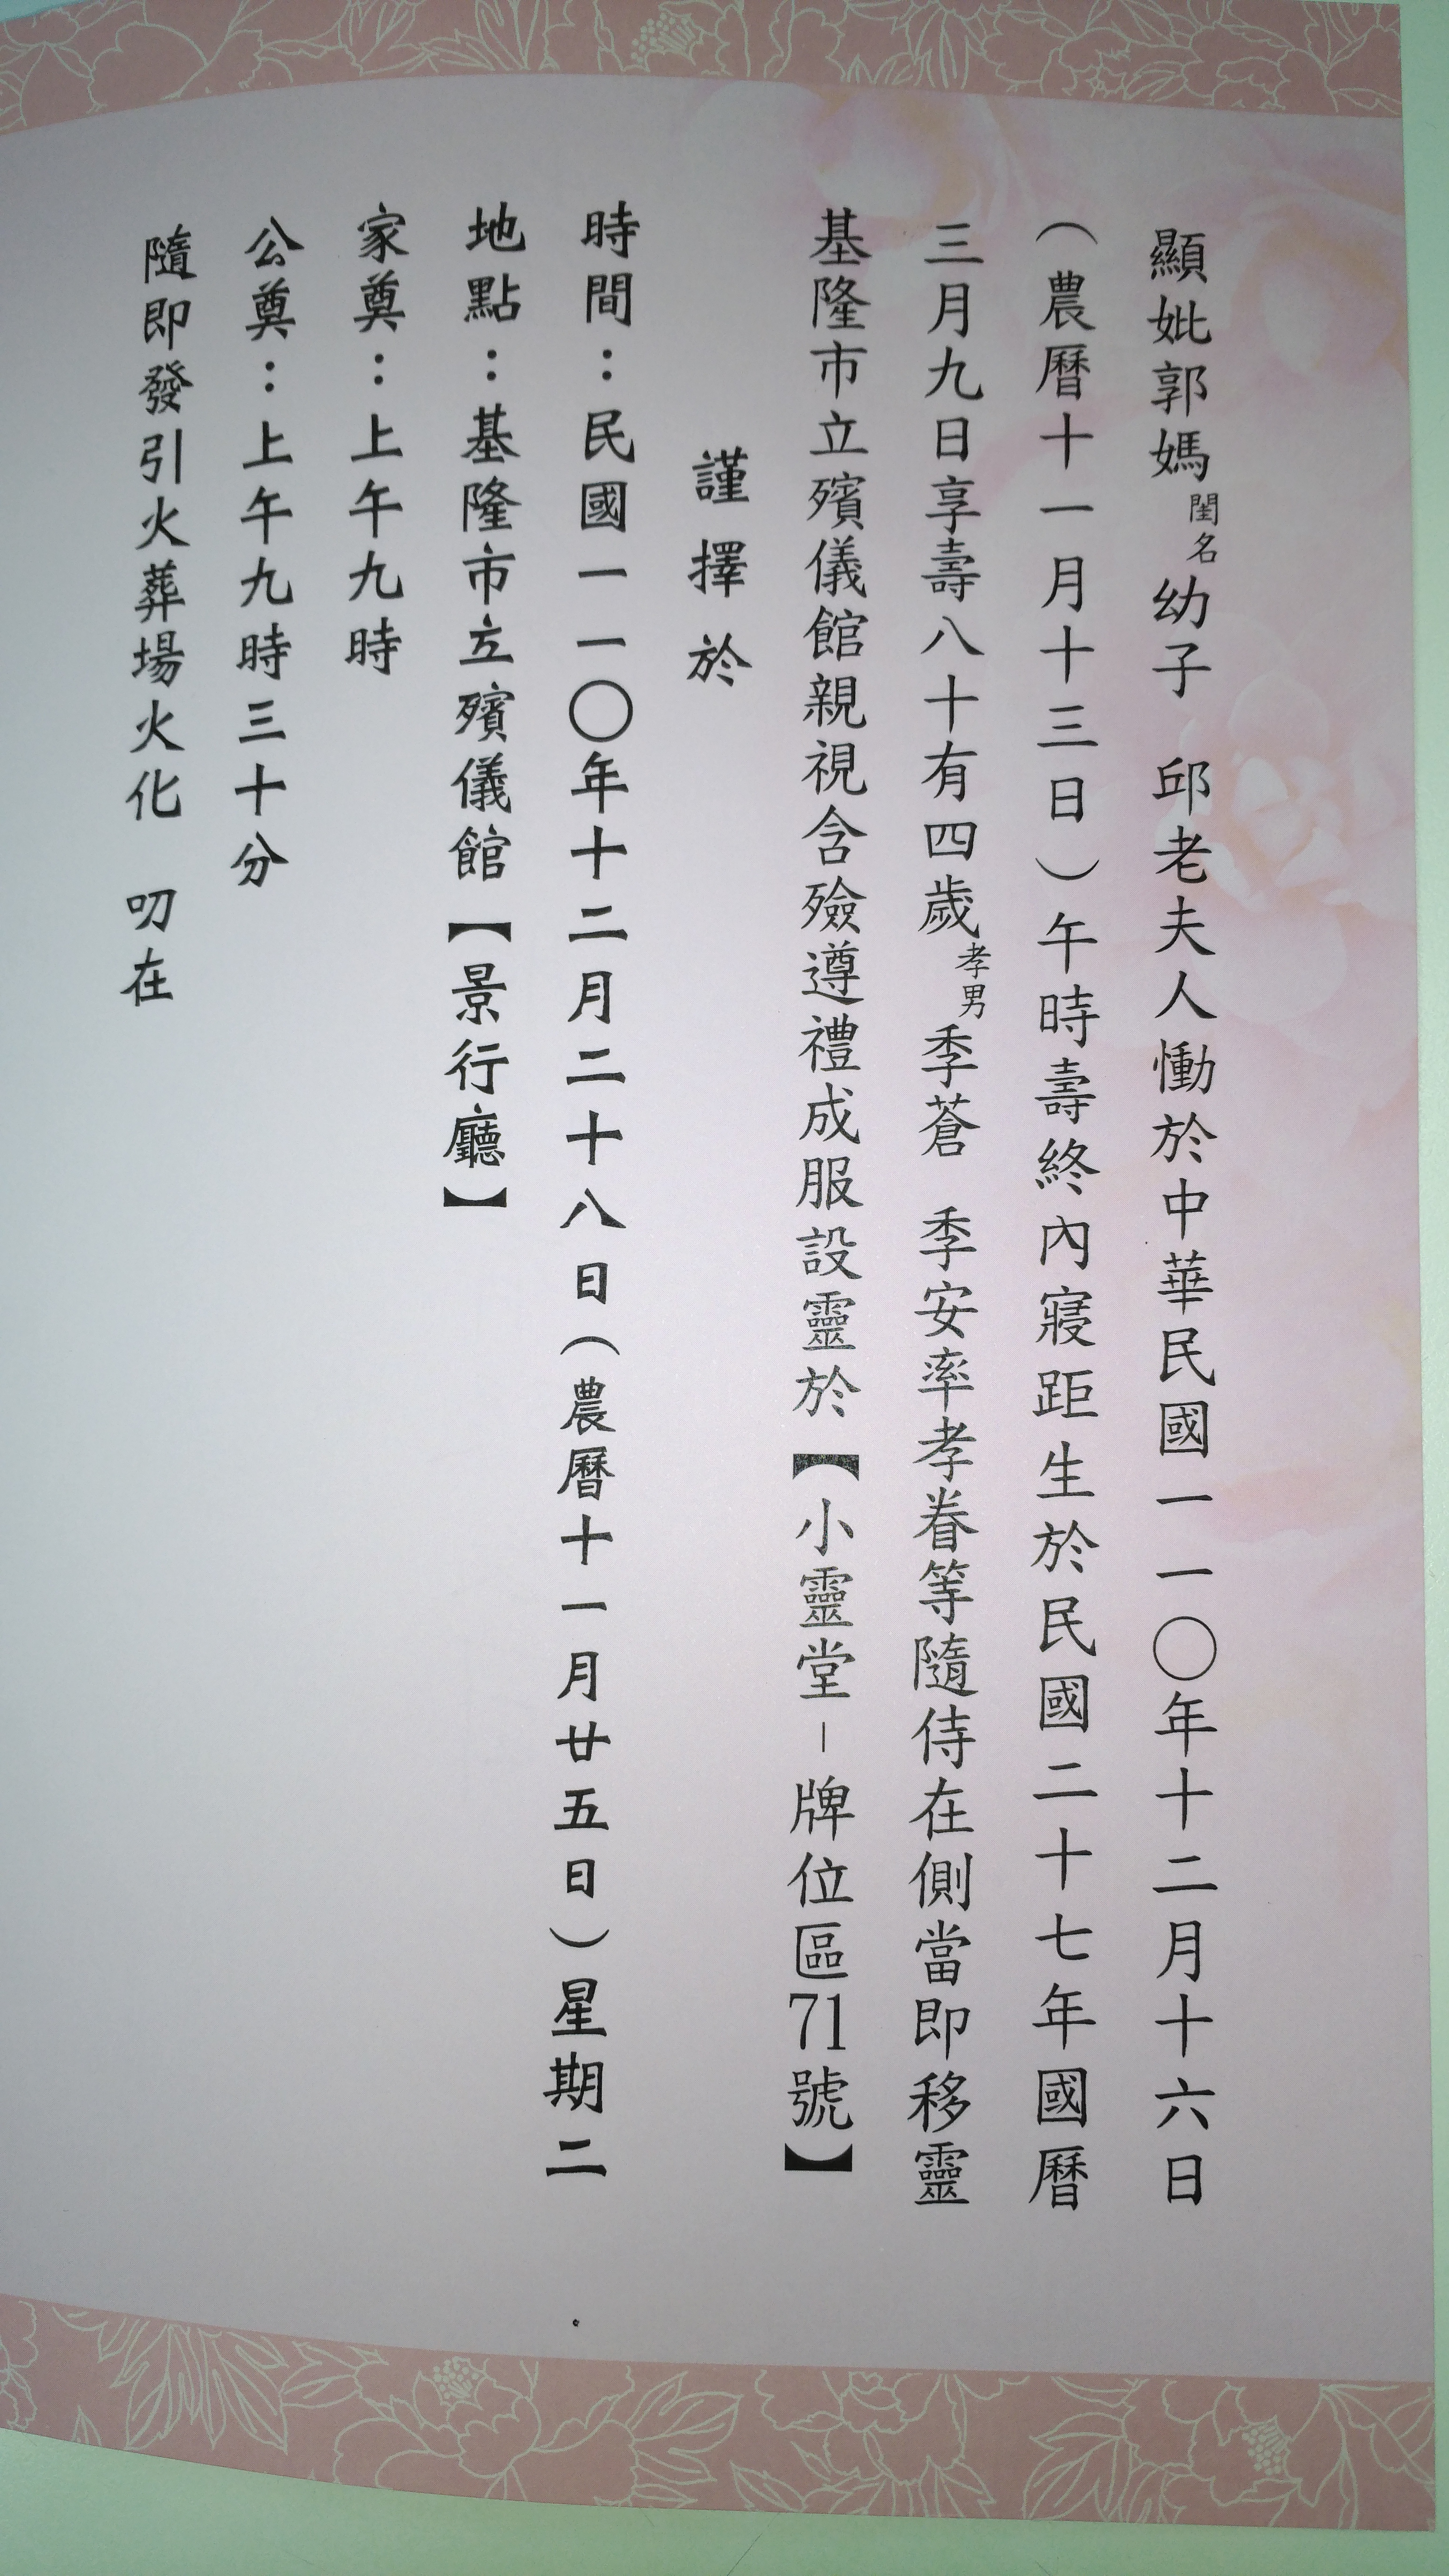 顯妣郭媽閨名幼子　邱老夫人慟於中華民國一一〇年十二月十六日
（農曆十一月十三日）午時壽終內寢距生於民國二十七年國曆
三月九日享壽八十有四歲孝男季蒼　季安率孝眷等隨侍在側當即移靈
基隆市立殯儀館親視含殮遵禮成服設靈於【小靈堂－牌位區71號】
謹擇於
時間：民國一一〇年十二月二十八日（農曆十一月廿五日）星期二
地點：基隆市立殯儀館【景行廳】
家奠：上午九時
公奠：上午九時三十分
隨即發引火葬場火化　叨在